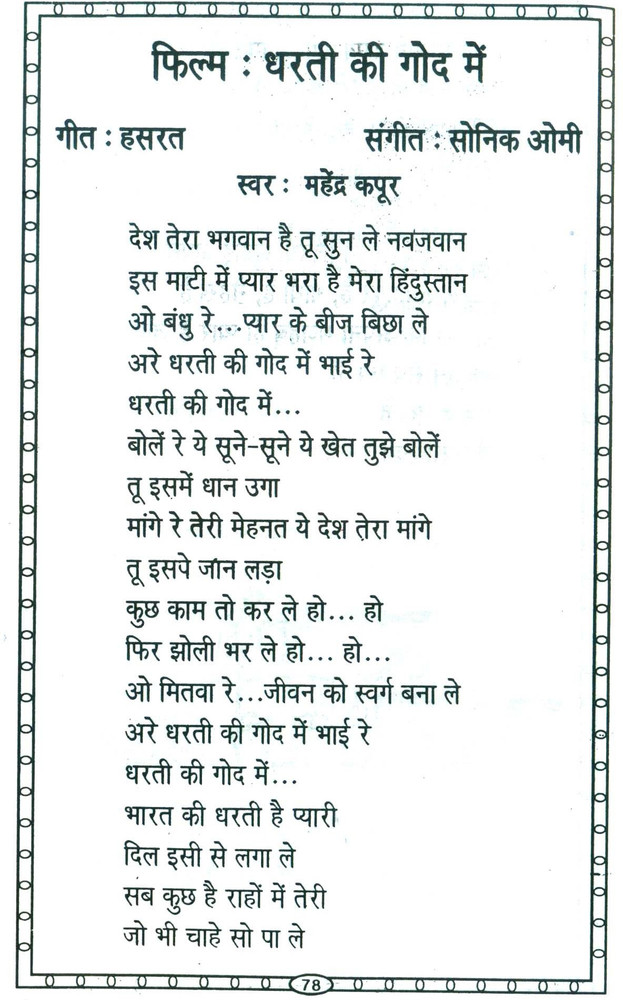 फिल्म : धरती की गोद में
गीत : हसरत संगीत : सोनिक ओमी
स्वर : महेंद्र कपूर
देश तेरा भगवान है तू सुन ले नवजवान
इस माटी में प्यार भरा है मेरा हिंदुस्तान
ओ बंधु रे...प्यार के बीज बिछा ले
अरे धरती की गोद में भाई रे
धरती की गोद में...
बोलें रे ये सूने-सूने ये खेत तुझे बोलें
तू इसमें धान उगा
मांगे रे तेरी मेहनत ये देश तेरा मांगे
तू इसपे जान लड़ा
कुछ काम तो कर ले हो... हो
फिर झोली भर ले हो... हो...
ओ मितवा रे...जीवन को स्वर्ग बना ले
अरे धरती की गोद में भाई रे
धरती की गोद में...
भारत की धरती है प्यारी
दिल इसी से लगा ले
सब कुछ है राहों में तेरी
जो भी चाहे सो पा ले
78